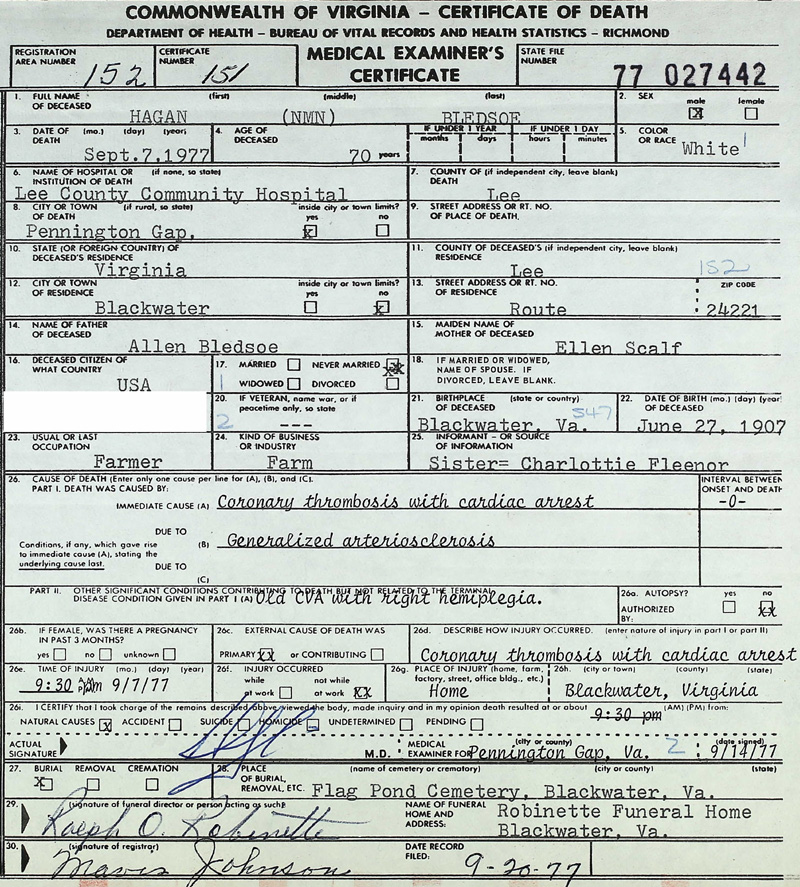 COMMONWEALTH OF VIRGINIA – CERTIFICATE OF DEATH
DEPARTMENT OF HEALTH – BUREAU OF VITAL RECORDS AND HEALTH STATISTICS – RICHMOND
REGISTRATION AREA NUMBER 152 CERTIFICATE NUMBER 151 MEDICAL EXAMINER'S CERTIFICATE STATE FILE NUMBER 77 027442
1. FULL NAME OF DECEASED (first) (middle) (last) 2. SEX male female
HAGAN (NMN) BLEDSOE X
3. DATE OF DEATH (mo.) (day) (year) 4. AGE OF DECEASED IF UNDER 1 YEAR months days IF UNDER 1 DAY hours minutes 5. COLOR OR RACE
Sept.7,1977 70 years White
6. NAME OF HOSPITAL OR INSTITUTION OF DEATH (if none, so state) 7. COUNTY OF DEATH (if independent city, leave blank)
Lee County Community Hospital Lee
8. CITY OR TOWN OF DEATH (if rural, so state) inside city or town limits? yes no 9. STREET ADDRESS OR RT. NO. OF PLACE OF DEATH.
Pennington Gap, X
10. STATE (OR FOREIGN COUNTRY) OF DECEASED'S RESIDENCE 11. COUNTY OF DECEASED'S RESIDENCE (if independent city, leave blank)
Virginia Lee 152
12. CITY OR TOWN OF RESIDENCE inside city or town limits? yes no 13. STREET ADDRESS OR RT. NO. OF RESIDENCE ZIP CODE
Blackwater X Route 24221
14. NAME OF FATHER OF DECEASED 15. MAIDEN NAME OF MOTHER OF DECEASED
Allen Bledsoe Ellen Scalf
16. DECEASED CITIZEN OF WHAT COUNTRY 17. MARRIED NEVER MARRIED XX WIDOWED DIVORCED 18. IF MARRIED OR WIDOWED, NAME OF SPOUSE. IF DIVORCED, LEAVE BLANK.
USA 1
20. IF VETERAN, name war, or if peacetime only, so state 21. BIRTHPLACE OF DECEASED (state or country) 22. DATE OF BIRTH (mo.) (day) (year) OF DECEASED
2 --- Blackwater, Va. 547 June 27, 1907
23. USUAL OR LAST OCCUPATION 24. KIND OF BUSINESS OR INDUSTRY 25. INFORMANT – OR SOURCE OF INFORMATION
Farmer Farm Sister= Charlottie Fleenor
26. CAUSE OF DEATH (Enter only one cause per line for (A), (B), and (C). INTERVAL BETWEEN ONSET AND DEATH
PART I. DEATH WAS CAUSED BY:
IMMEDIATE CAUSE (A) Coronary thrombosis with cardiac arrest -0-
DUE TO
Conditions, if any, which gave rise to immediate cause (A), stating the underlying cause last. (B) Generalized arteriosclerosis
DUE TO
(C)
PART II. OTHER SIGNIFICANT CONDITIONS CONTRIBUTING TO DEATH BUT NOT RELATED TO THE TERMINAL DISEASE CONDITION GIVEN IN PART I (A) Old CVA with right hemiplegia. 26a. AUTOPSY? yes no
AUTHORIZED BY: XX
26b. IF FEMALE, WAS THERE A PREGNANCY IN PAST 3 MONTHS? 26c. EXTERNAL CAUSE OF DEATH WAS 26d. DESCRIBE HOW INJURY OCCURRED. (enter nature of injury in part I or part II)
yes no unknown PRIMARY XX or CONTRIBUTING Coronary thrombosis with cardiac arrest
26e. TIME OF INJURY (mo.) (day) (year) 26f. INJURY OCCURRED while at work not while at work XX 26g. PLACE OF INJURY (home, farm, factory, street, office bldg., etc.) 26h. (city or town) (county) (state)
9:30 pm 9/7/77 Home Blackwater, Virginia
26i. I CERTIFY that I took charge of the remains described above, viewed the body, made inquiry and in my opinion death resulted at or about 9:30 pm (AM) (PM) from:
NATURAL CAUSES X ACCIDENT SUICIDE HOMICIDE UNDETERMINED PENDING
ACTUAL SIGNATURE M.D. MEDICAL EXAMINER FOR (city or county) Pennington Gap, Va. 2 (date signed) 9/14/77
27. BURIAL REMOVAL CREMATION 28. PLACE OF BURIAL, REMOVAL, ETC. (name of cemetery or crematory) (city or county) (state)
X Flag Pond Cemetery, Blackwater, Va.
29. (signature of funeral director or person acting as such) NAME OF FUNERAL HOME AND ADDRESS: Robinette Funeral Home
Ralph O. Robinette Blackwater, Va.
30. (signature of registrar) DATE RECORD FILED:
Mavis Johnson 9-20-77